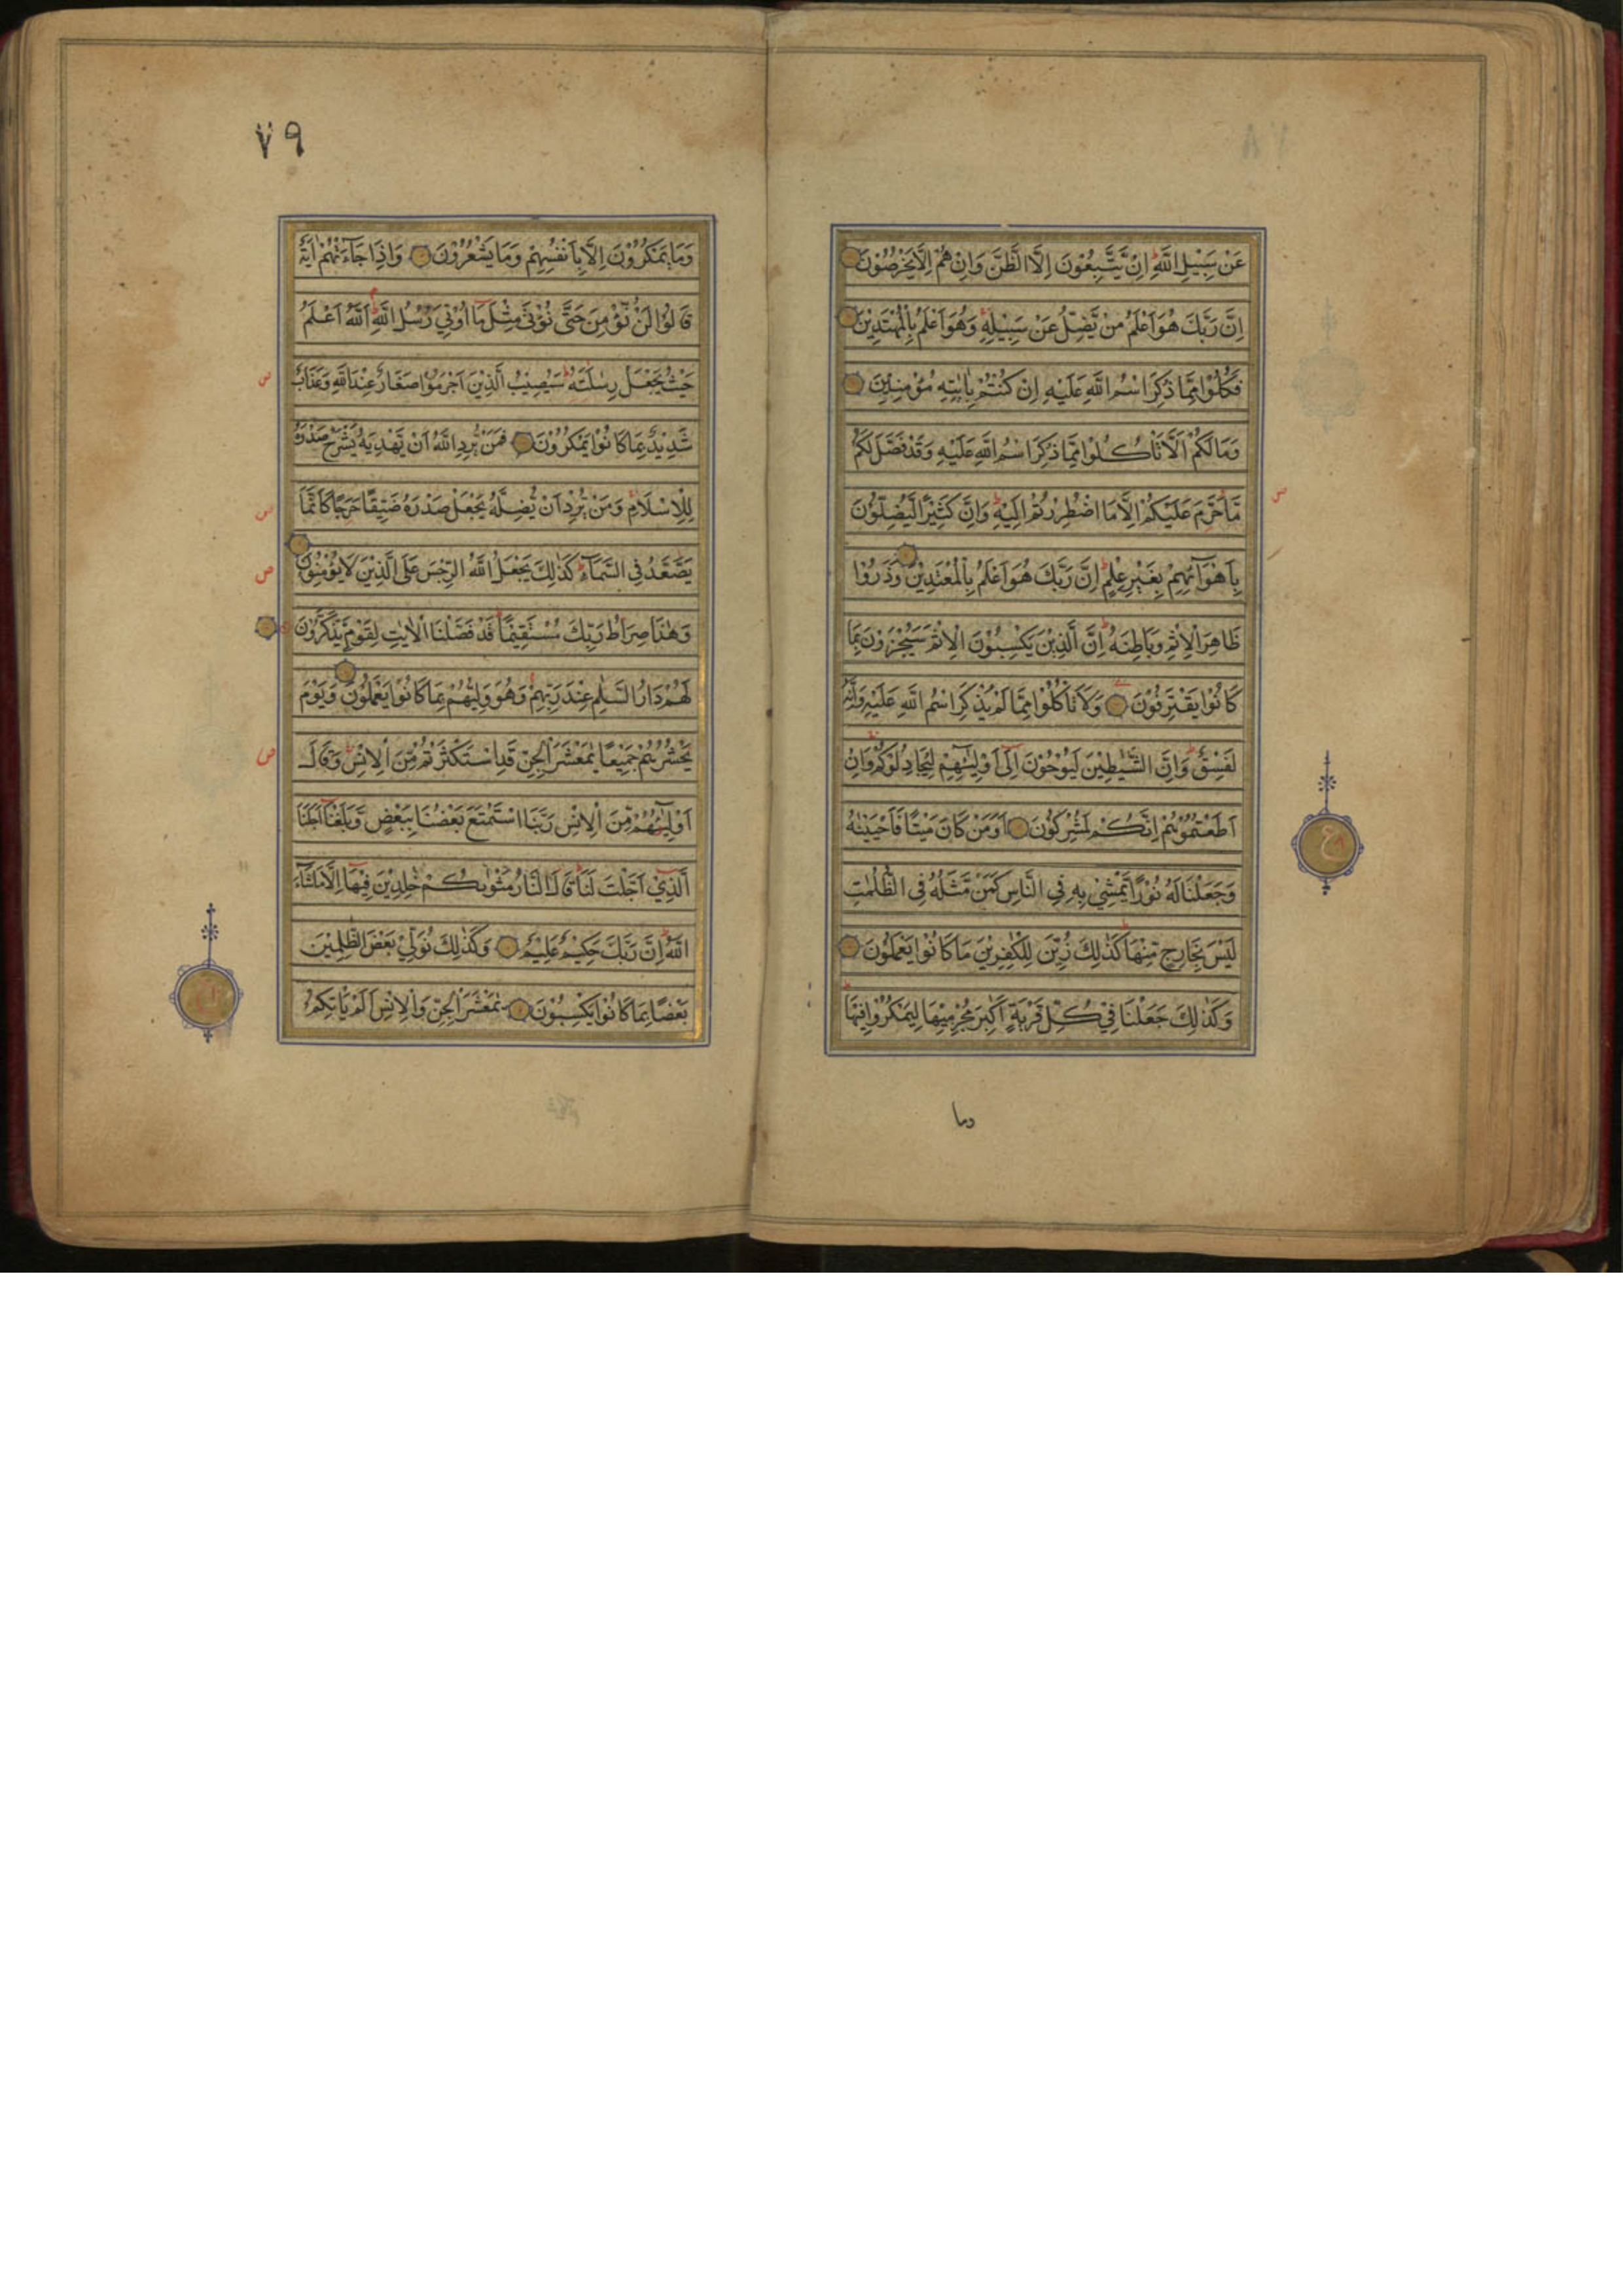 عَنْ سَبِيْلِ اللّٰهِ ؕ اِنْ يَّتَّبِعُوْنَ اِلَّا الظَّنَّ وَاِنْ هُمْ اِلَّا يَخْرُصُوْنَ
اِنَّ رَبَّكَ هُوَ اَعْلَمُ مَنْ يَّضِلُّ عَنْ سَبِيْلِهٖ ۚ وَهُوَ اَعْلَمُ بِالْمُهْتَدِيْنَ
فَكُلُوْا مِمَّا ذُكِرَ اسْمُ اللّٰهِ عَلَيْهِ اِنْ كُنْتُمْ بِاٰيٰتِهٖ مُؤْمِنِيْنَ
وَمَا لَكُمْ اَلَّا تَاْكُلُوْا مِمَّا ذُكِرَ اسْمُ اللّٰهِ عَلَيْهِ وَقَدْ فَصَّلَ لَكُمْ
مَّا حَرَّمَ عَلَيْكُمْ اِلَّا مَا اضْطُرِرْتُمْ اِلَيْهِ ؕ وَاِنَّ كَثِيْرًا لَّيُضِلُّوْنَ
بِاَهْوَآئِهِمْ بِغَيْرِ عِلْمٍ ؕ اِنَّ رَبَّكَ هُوَ اَعْلَمُ بِالْمُعْتَدِيْنَ وَذَرُوْا
ظَاهِرَ الْاِثْمِ وَبَاطِنَهٗ ؕ اِنَّ الَّذِيْنَ يَكْسِبُوْنَ الْاِثْمَ سَيُجْزَوْنَ بِمَا
كَانُوْا يَقْتَرِفُوْنَ وَلَا تَاْكُلُوْا مِمَّا لَمْ يُذْكَرِ اسْمُ اللّٰهِ عَلَيْهِ وَاِنَّهٗ
لَفِسْقٌ ؕ وَاِنَّ الشَّيٰطِيْنَ لَيُوْحُوْنَ اِلٰٓى اَوْلِيٰٓئِهِمْ لِيُجَادِلُوْكُمْ وَاِنْ
اَطَعْتُمُوْهُمْ اِنَّكُمْ لَمُشْرِكُوْنَ اَوَمَنْ كَانَ مَيْتًا فَاَحْيَيْنٰهُ
وَجَعَلْنَا لَهٗ نُوْرًا يَّمْشِيْ بِهٖ فِي النَّاسِ كَمَنْ مَّثَلُهٗ فِي الظُّلُمٰتِ
لَيْسَ بِخَارِجٍ مِّنْهَا ؕ كَذٰلِكَ زُيِّنَ لِلْكٰفِرِيْنَ مَا كَانُوْا يَعْمَلُوْنَ
وَكَذٰلِكَ جَعَلْنَا فِيْ كُلِّ قَرْيَةٍ اَكٰبِرَ مُجْرِمِيْهَا لِيَمْكُرُوْا فِيْهَا
وما
٧٩
وَمَا يَمْكُرُوْنَ اِلَّا بِاَنْفُسِهِمْ وَمَا يَشْعُرُوْنَ وَاِذَا جَآءَتْهُمْ اٰيَةٌ
قَالُوْا لَنْ نُّؤْمِنَ حَتّٰى نُؤْتٰى مِثْلَ مَآ اُوْتِيَ رُسُلُ اللّٰهِ ؕ اَللّٰهُ اَعْلَمُ
حَيْثُ يَجْعَلُ رِسٰلَتَهٗ ؕ سَيُصِيْبُ الَّذِيْنَ اَجْرَمُوْا صَغَارٌ عِنْدَ اللّٰهِ وَعَذَابٌ
شَدِيْدٌۢ بِمَا كَانُوْا يَمْكُرُوْنَ فَمَنْ يُّرِدِ اللّٰهُ اَنْ يَّهْدِيَهٗ يَشْرَحْ صَدْرَهٗ
لِلْاِسْلَامِ ۚ وَمَنْ يُّرِدْ اَنْ يُّضِلَّهٗ يَجْعَلْ صَدْرَهٗ ضَيِّقًا حَرَجًا كَاَنَّمَا
يَصَّعَّدُ فِي السَّمَآءِ ؕ كَذٰلِكَ يَجْعَلُ اللّٰهُ الرِّجْسَ عَلَى الَّذِيْنَ لَا يُؤْمِنُوْنَ
وَهٰذَا صِرَاطُ رَبِّكَ مُسْتَقِيْمًا ؕ قَدْ فَصَّلْنَا الْاٰيٰتِ لِقَوْمٍ يَّذَّكَّرُوْنَ
لَهُمْ دَارُ السَّلٰمِ عِنْدَ رَبِّهِمْ وَهُوَ وَلِيُّهُمْ بِمَا كَانُوْا يَعْمَلُوْنَ وَيَوْمَ
يَحْشُرُهُمْ جَمِيْعًا يٰمَعْشَرَ الْجِنِّ قَدِ اسْتَكْثَرْتُمْ مِّنَ الْاِنْسِ ۚ وَقَالَ
اَوْلِيٰٓؤُهُمْ مِّنَ الْاِنْسِ رَبَّنَا اسْتَمْتَعَ بَعْضُنَا بِبَعْضٍ وَّبَلَغْنَآ اَجَلَنَا
الَّذِيْٓ اَجَّلْتَ لَنَا ؕ قَالَ النَّارُ مَثْوٰىكُمْ خٰلِدِيْنَ فِيْهَآ اِلَّا مَا شَآءَ
اللّٰهُ ؕ اِنَّ رَبَّكَ حَكِيْمٌ عَلِيْمٌ وَكَذٰلِكَ نُوَلِّيْ بَعْضَ الظّٰلِمِيْنَ
بَعْضًا بِمَا كَانُوْا يَكْسِبُوْنَ يٰمَعْشَرَ الْجِنِّ وَالْاِنْسِ اَلَمْ يَاْتِكُمْ